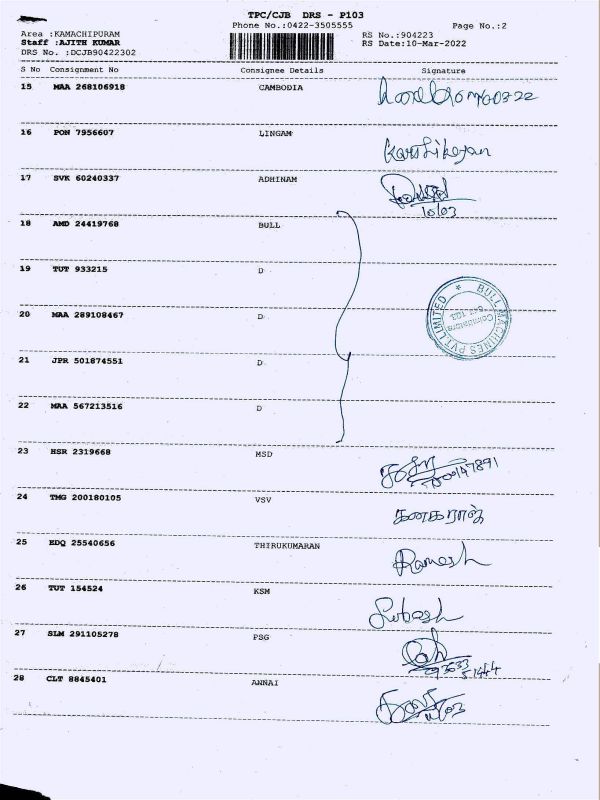 TPC/CJB DRS - P103
Phone No.:0422-3505555 Page No.:2
Area :KAMACHIPURAM RS No.:904223
Staff :AJITH KUMAR RS Date:10-Mar-2022
DRS No. :DCJB90422302
S No Consignment No Consignee Details Signature
15 MAA 268106918 CAMBODIA
16 PON 7956607 LINGAM
Karthikeyan
17 SVK 60240337 ADHINAM
10/03
18 AMD 24419768 BULL
19 TUT 933215 D
20 MAA 289108467 D
BULL MACHINES PVT LIMITED
Coimbatore
21 JPR 501874551 D
22 MAA 567213516 D
23 HSR 2319668 MSD
24 TMG 200180105 VSV
கனகராஜ்
25 EDQ 25540656 THIRUKUMARAN
Ramesh
26 TUT 154524 KSM
Subash
27 SLM 291105278 PSG
28 CLT 8845401 ANNAI